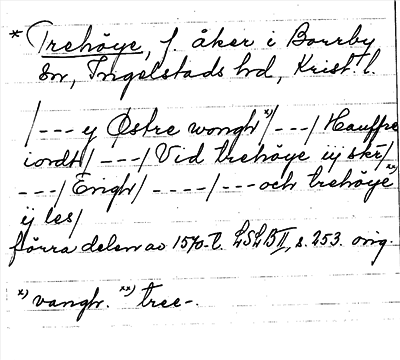 * Trehöye, f. åker i Borrby
sn, Ingelstads hd, Krist. l.
/--- y Østre wongh x)/---/ Hauffre
iordt/ ---/ Vid trehöye iij skr/
---/ Engh/ ----/---och trehöye xx)
ij les/
förra delen av 1570-t. LSLB II, s. 253. orig.
x) vangh. xx) tree-.